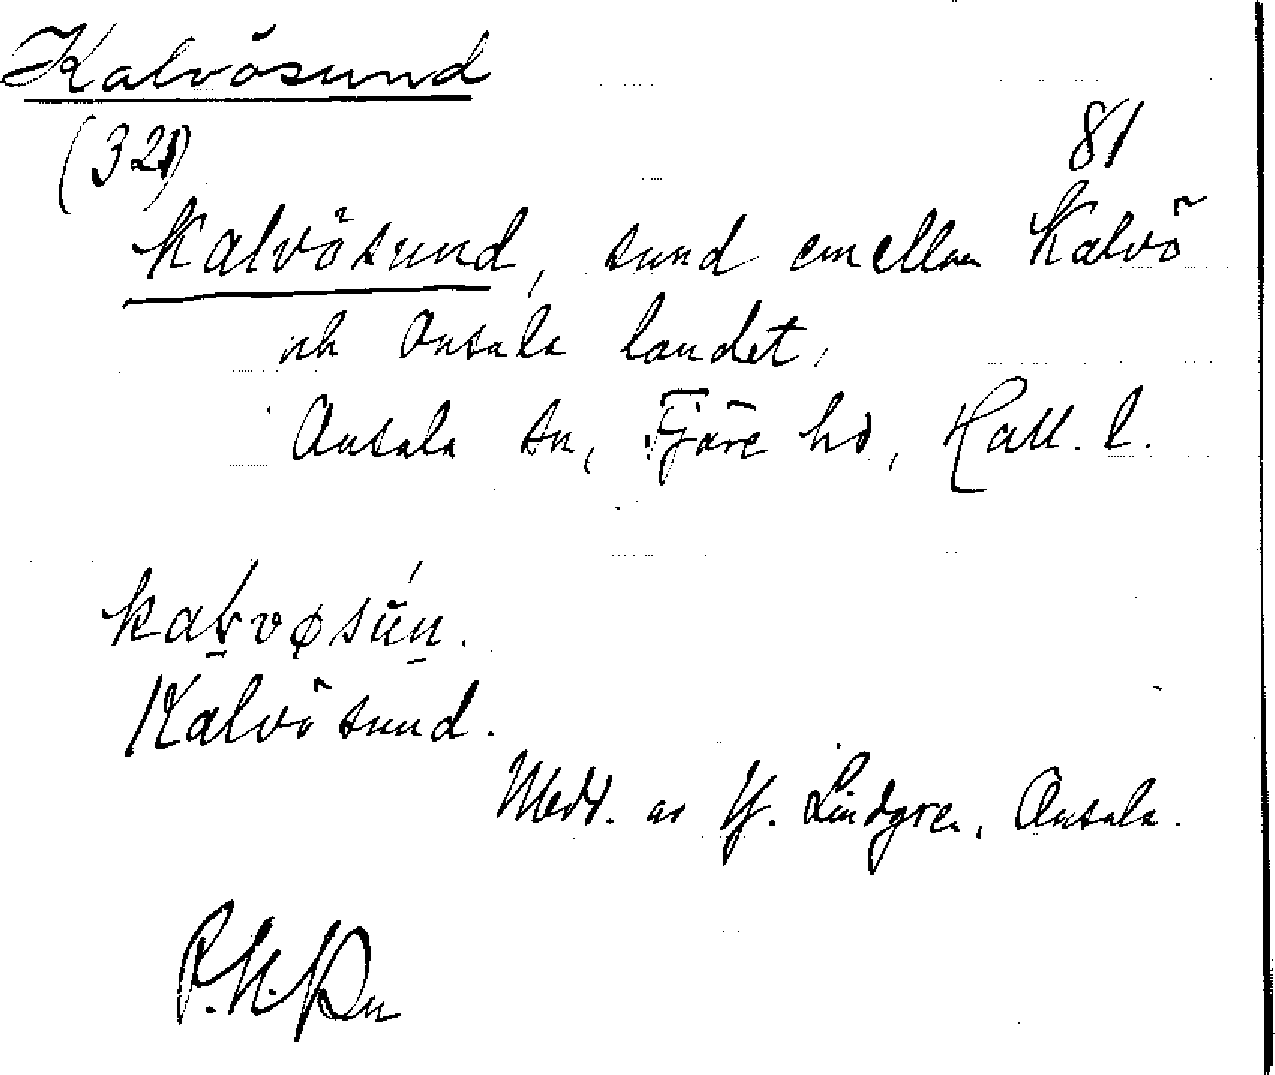 Kalvösund
(321)
81
Kalvösund, sund emellan Kalvö
och Onsala landet,
Onsala sn, Fjäre hd, Hall. l.
Kalvösund.
Medd. av Hj. Lindgren, Onsala.